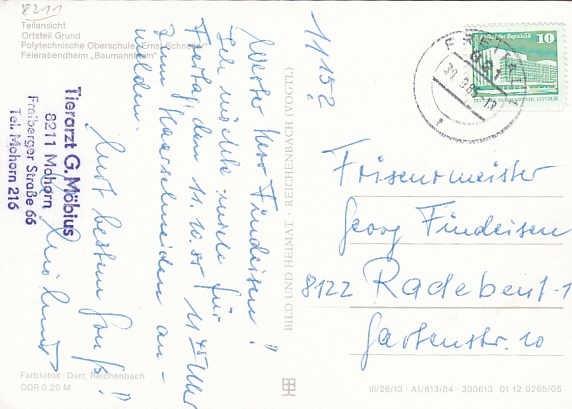 8211
Teilansicht
Ortsteil Grund
Polytechnische Oberschule "Ernst Schneller"
Feierabendheim „Baumannheim"
Tierarzt G. Möbius
8211 Mohorn
Freiberger Straße 66
Tel. Mohorn 216
11 15?
Werter Herr Findeisen!
Ich möchte mich für
Freitag, den 11.10.85 11 45 Uhr
zum Haarschneiden an-
melden.
Mit besten Gruß!
Farbfotos: Darr, Reichenbach
DDR 0,20 M
BILD UND HEIMAT · REICHENBACH (VOGTL)
10
Palast der Republik
Friseurmeister
Georg Findeisen
8122 Radebeul-1
Gartenstr. 10
III/26/13 · A1/613/84 · 300613 01 12 0265/05